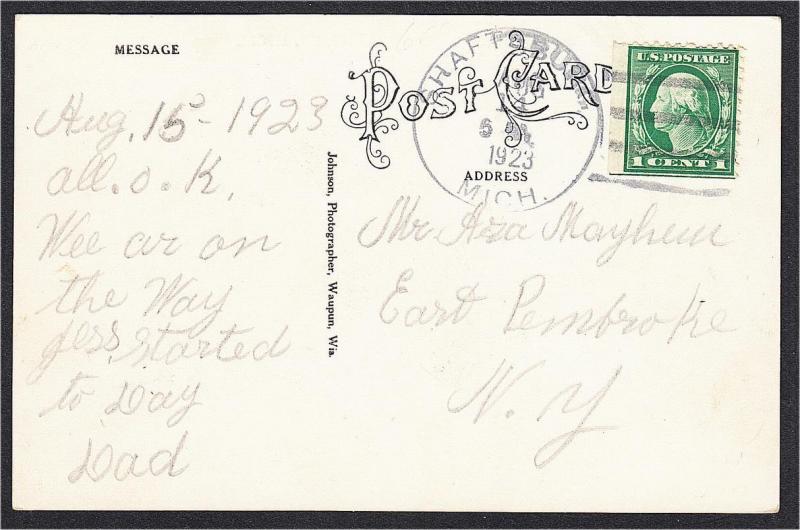 MESSAGE
POST CARD
SHAFTSBURG
6
1923
MICH.
U.S. POSTAGE
1 CENT 1
ADDRESS
Aug, 15 - 1923
all. o. K,
Wee ar on
the Way
jess started
to Day
Dad
Johnson, Photographer, Waupun, Wis.
Mr Aza Mayhew
East Pembroke
N. Y